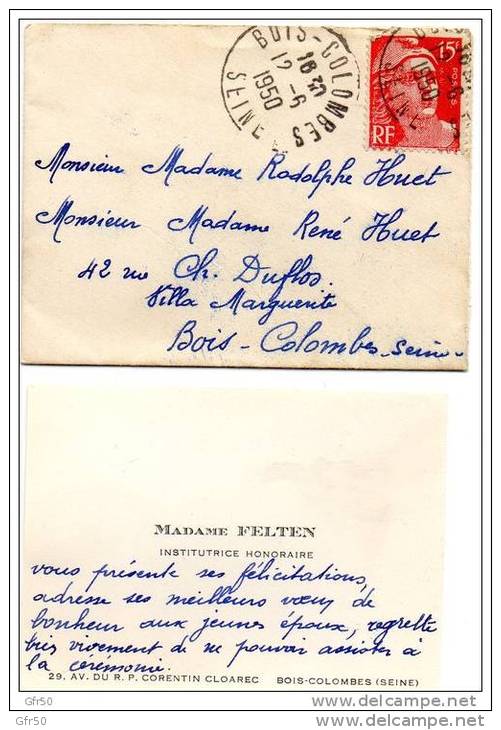 BOIS-COLOMBES
18 30
12 - 6
1950
SEINE
15F
POSTES
RF
1950
SEINE
Monsieur Madame Rodolphe Huet
Monsieur Madame René Huet
42 rue Ch. Duflos.
Villa Marguerite
Bois-Colombes-Seine-
MADAME FELTEN
INSTITUTRICE HONORAIRE
vous présente ses félicitations,
adresse ses meilleurs vœux de
bonheur aux jeunes époux, regrette
bien vivement de ne pouvoir assister à
la cérémonie.
29, AV. DU R. P. CORENTIN CLOAREC BOIS-COLOMBES (SEINE)
Gfr50 delcampe.net
Gfr50 delcampe.net